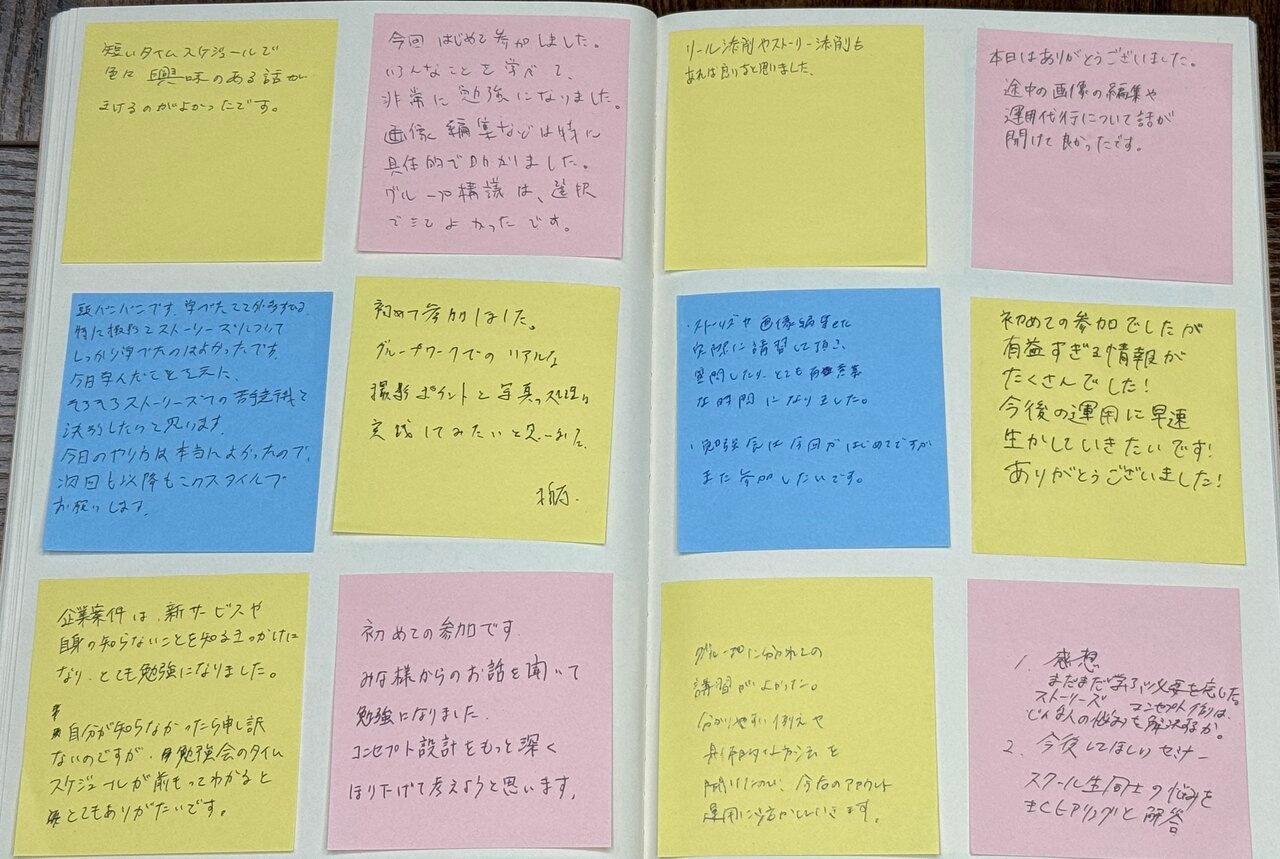 短いタイムスケジュールで
色々興味のある話が
きけるのがよかったです。
今回はじめて参加しました。
いろんなことを学べて、
非常に勉強になりました。
画像編集などは特に
具体的で助かりました。
グループ構議は、選択
できてよかったです。
リール添削やストーリー添削も
あれば良いなと思いました。
本日はありがとうございました。
途中の画像の編集や
運用代行について話が
聞けて良かったです。
頭パンパンです。学べたことが多すぎる。
特に撮影とストーリーズについて
しっかり学べたのはよかったです。
今日学んだことを元に、
そろそろストーリーズへの苦手意識と
決別したいと思います。
今日のやり方は本当によかったので、
次回も以降もこのスタイルで
お願いします。
初めて参加しました。
グループワークでのリアルな
撮影ポイントと写真の処理は
実践してみたいと思いました。
・ストーリーズや画像編集etc
実際に講習して頂き、
質問したり、とても有意義
な時間になりました。
・勉強会は今回がはじめてですが
また参加したいです。
初めての参加でしたが
有益すぎる情報が
たくさんでした!
今後の運用に早速
生かしていきたいです!
ありがとうございました!
企業案件は、新サービスや
自身の知らないことを知るきっかけに
なり、とても勉強になりました。
自分が知らなかったら申し訳
ないのですが、勉強会のタイム
スケジュールが前もってわかると
とてもありがたいです。
初めての参加です
みな様からのお話を聞いて
勉強になりました.
コンセプト設計をもっと深く
ほり下げて考えようと思います。
グループに分かれての
講習がよかった。
分かりやすい例えや
具体的なやり方を
聞けたので、今後のアカウント
運用に活かしていきます。
1. 感想
まだまだ学ぶ必要を感じた。
ストーリーズ コンセプト作りは、
どんな人の悩みを解決するか。
2. 今後してほしいセミナー
スクール生同士の悩みを
ヒアリングと解答